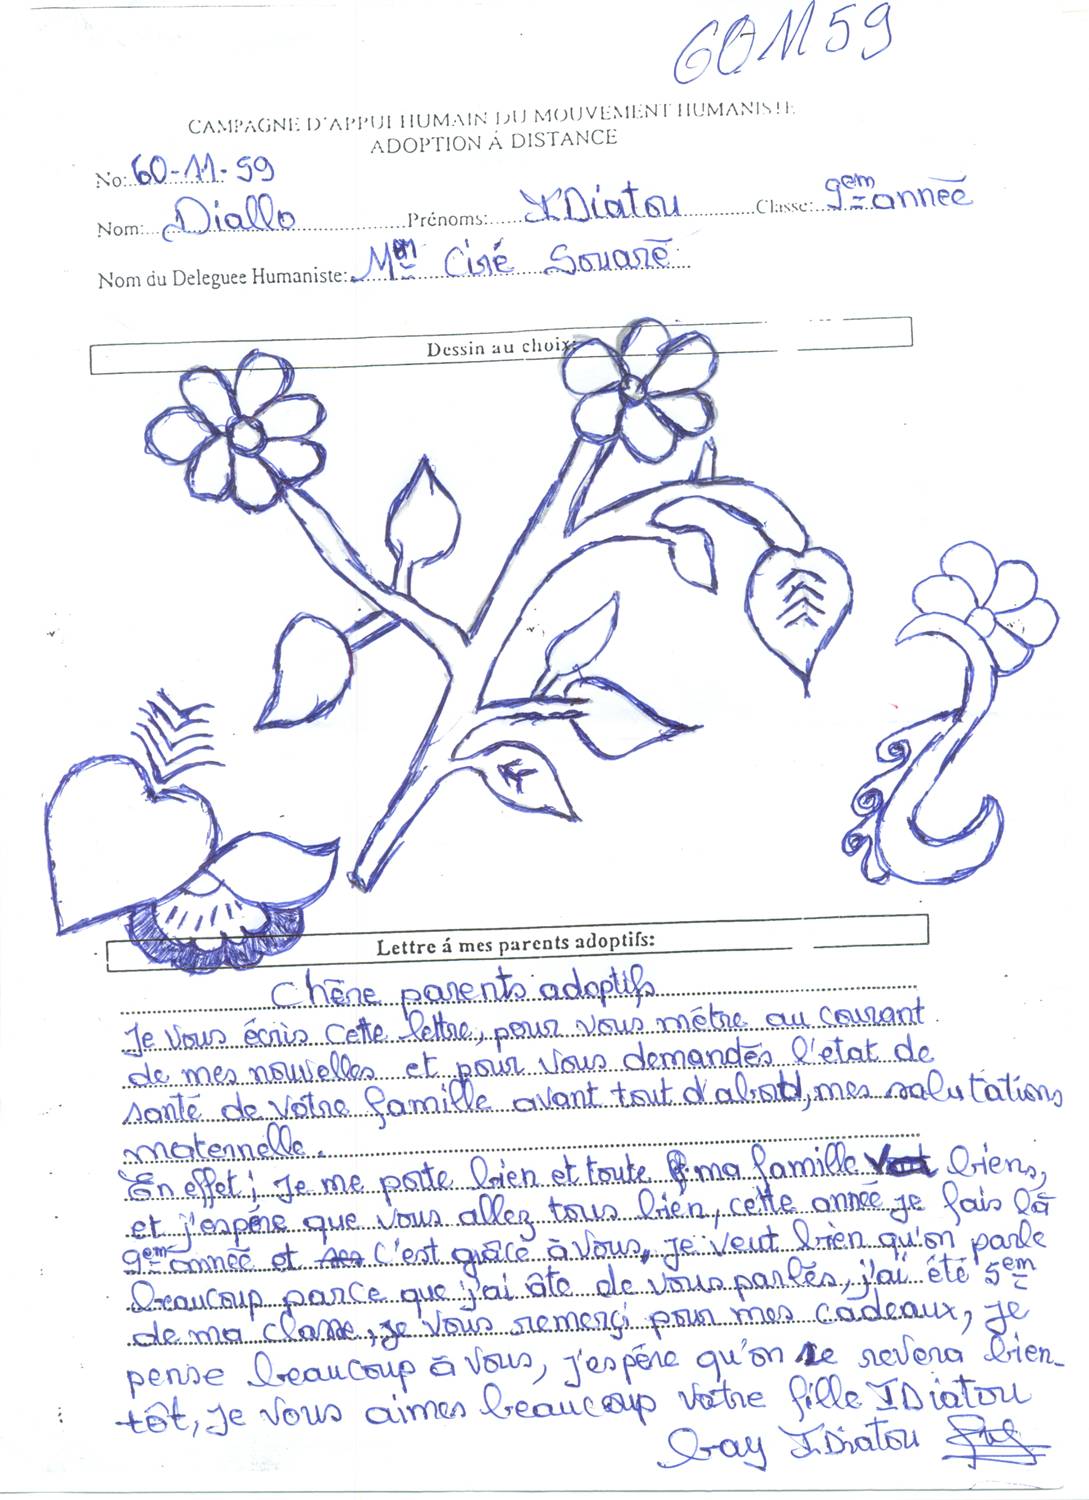 60M59
CAMPAGNE D'APPUI HUMAIN DU MOUVEMENT HUMANISTE
ADOPTION Á DISTANCE
No: 60-11-59
Nom: Diallo Prénoms: IDiatou Classe: 9em année
Nom du Deleguee Humaniste: Mem Ciré Souaré
Dessin au choix:
Lettre á mes parents adoptifs:
Chère parents adoptifs
Je vous écris cette lettre, pour vous métre au courant
de mes nouvelles et pour vous demandés l'etat de
santé de votre famille avant tout d'abord, mes salutations
maternnelle.
En effet; Je me porte bien et toute ma famille biens,
et j'espére que vous allez tous bien, cette année je fais là
9em année et c'est grâce à vous, je veut bien qu'on parle
beaucoup parce que j'ai âte de vous parlés, j'ai été 5em
de ma classe, je vous remerçi pour mes cadeaux, je
pense beaucoup à vous, j'espére qu'on se revera bien-
tôt, Je vous aimes beaucoup votre fille IDiatou
bay I.Diatou